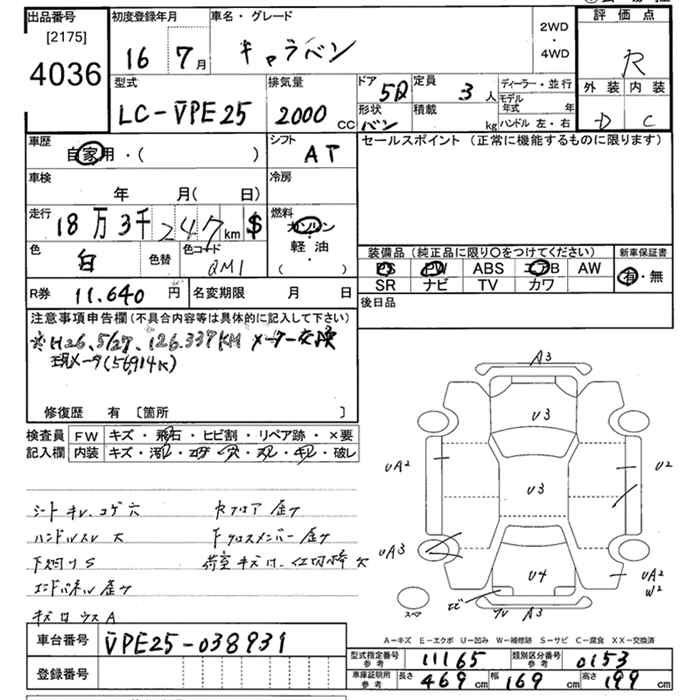 出品番号
[2175]
4036
初度登録年月
16 7月
車名・グレード
キャラバン
2WD
・
4WD
評価点
R
外装 内装
D C
型式
LC-VPE25
排気量
2000 CC
ドア 5D
定員 3人
形状 バン
積載 kg
ディーラー・並行
モデル年式 年
ハンドル 左・右
車歴
自家用・( )
シフト
AT
セールスポイント (正常に機能するものに限ります)
車検
年 月( 日)
冷房
走行
18万3千247km $
燃料
ガソリン
・
軽油
( )
色
白
色替
色コード
QM1
装備品 (純正品に限り〇をつけてください)
PS PW ABS エアB AW
SR ナビ TV カワ
新車保証書
有・無
R券 11.640円
名変期限 月 日
後日品
注意事項申告欄(不具合内容等は具体的に記入して下さい)
※H26.5/27. 126.337KM メーター交換
現メータ(56914K)
修復歴 有 [箇所 ]
検査員
記入欄
FW キズ・飛石・ヒビ割・リペア跡・×要
内装 キズ・汚・コゲ・穴・スレ・キレ・破レ
シートキレ、コゲ穴
ハンドルスレ 大
下廻りS
エンドパネル歪ケ
キズロウスA
Rフロア歪ケ
Fクロスメンバー歪ケ
A3
U3
U3
U4
UA2
UA3
U2
UA2
W2
A3
スペア
A-キズ E-エクボ U-凹み W-補修跡 S-サビ C-腐食 XX-交換済
車台番号 VPE25-038931
登録番号
型式指定番号
参考
11165
類別区分番号
参考
0153
車庫証明用
参考
長さ 469cm 幅 169cm 高さ 199cm